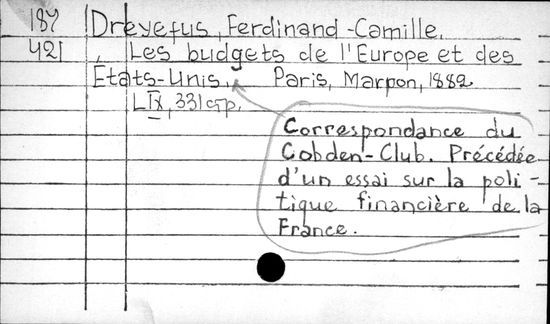 187 Dreyefus, Ferdinand-Camille.
421 Les budgets de l'Europe et des
États-Unis. Paris, Marpon, 1882
LIX, 331 p.
Correspondance du
Cobden-Club. Précédée
d'un essai sur la poli-
tique financière de la
France.